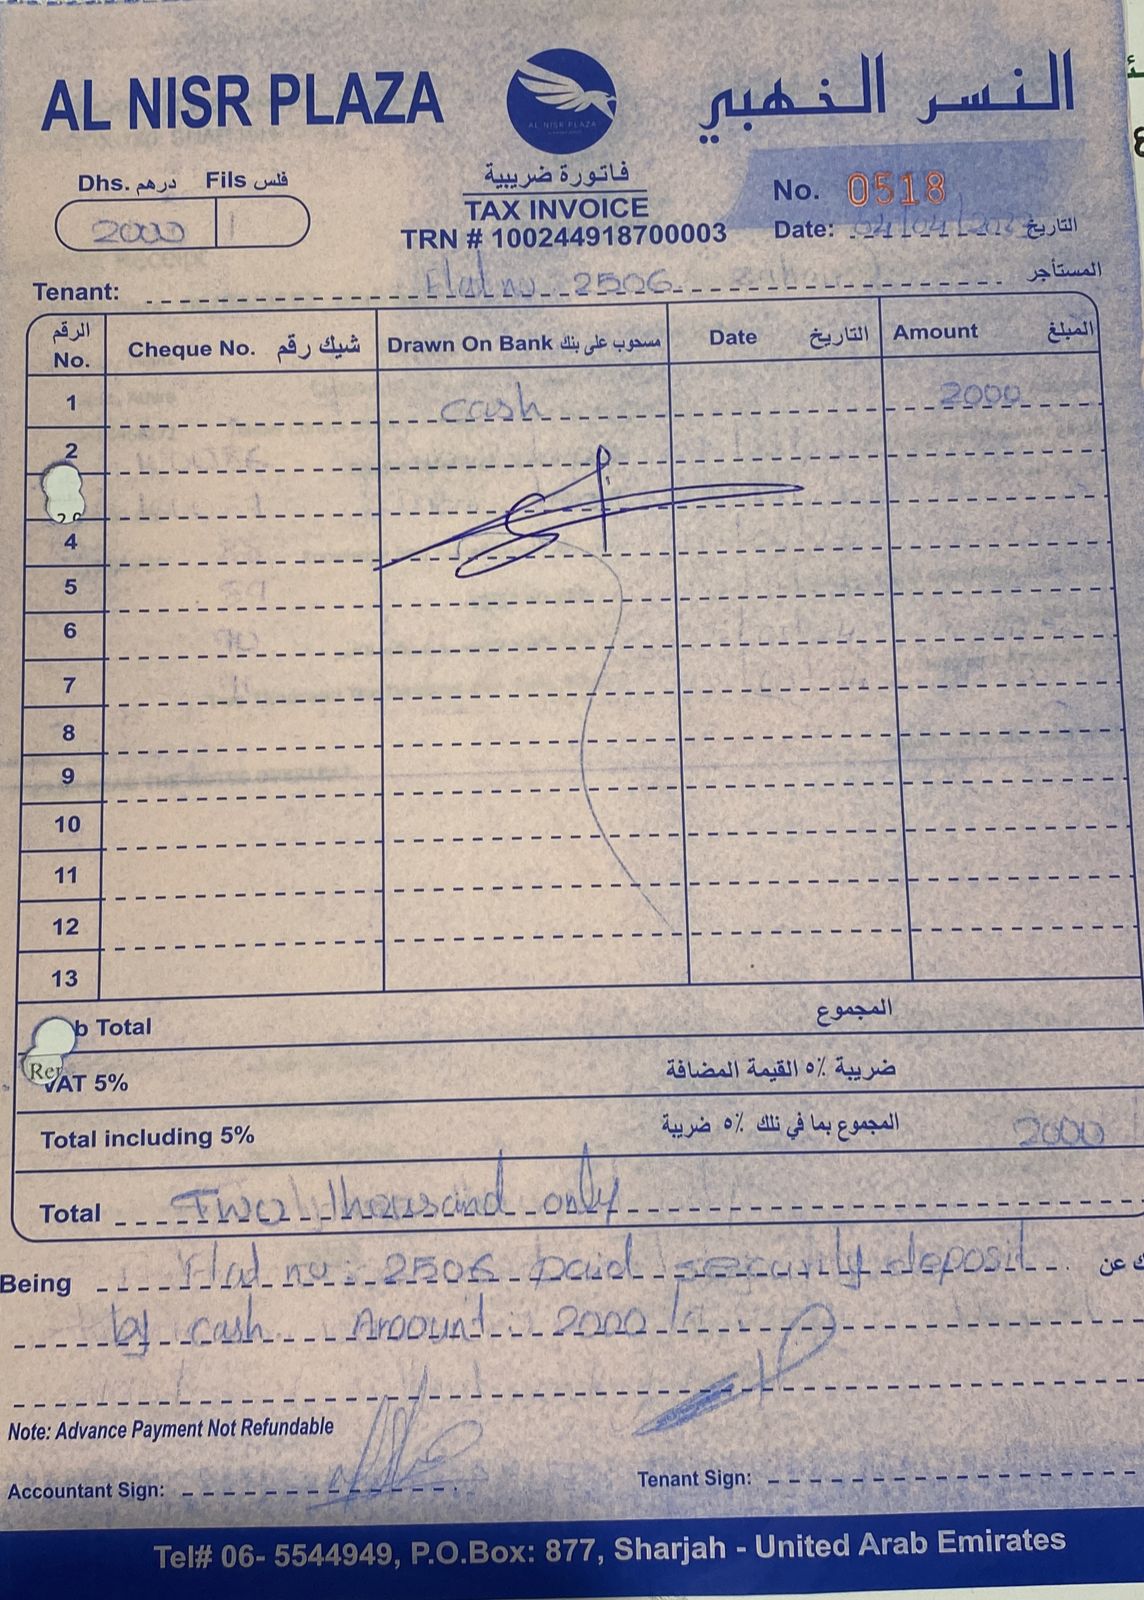 AL NISR PLAZA
AL NISR PLAZA
النسر الخهبي
Dhs. درهم Fils فلس
2000
فاتورة ضريبية
TAX INVOICE
TRN # 100244918700003
No. 0518
Date: 04/04/ التاريخ
Tenant: Flat no 2506 المستأجر
الرقم No. Cheque No. شيك رقم Drawn On Bank مسحوب على بنك Date التاريخ Amount المبلغ
1 cash 2000
2
4
5
6
7
8
9
10
11
12
13
b Total المجموع
Rer
VAT 5% ضريبة ٥٪ القيمة المضافة
Total including 5% المجموع بما في نلك ٥٪ ضريبة 2000
Total Two thousand only
Being Flat no: 2506 paid security deposit
by cash Amount: 2000/
Note: Advance Payment Not Refundable
Accountant Sign: Tenant Sign:
Tel# 06- 5544949, P.O.Box: 877, Sharjah - United Arab Emirates